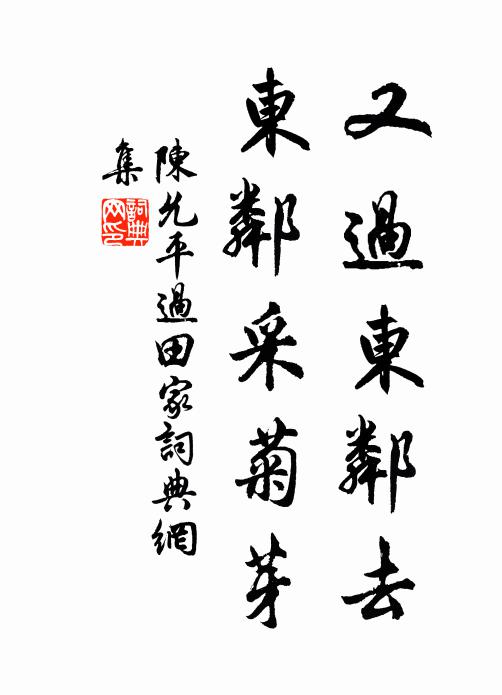 又過東鄰去
東鄰采菊芽
陳允平過田家詞典網
集
詞典網印